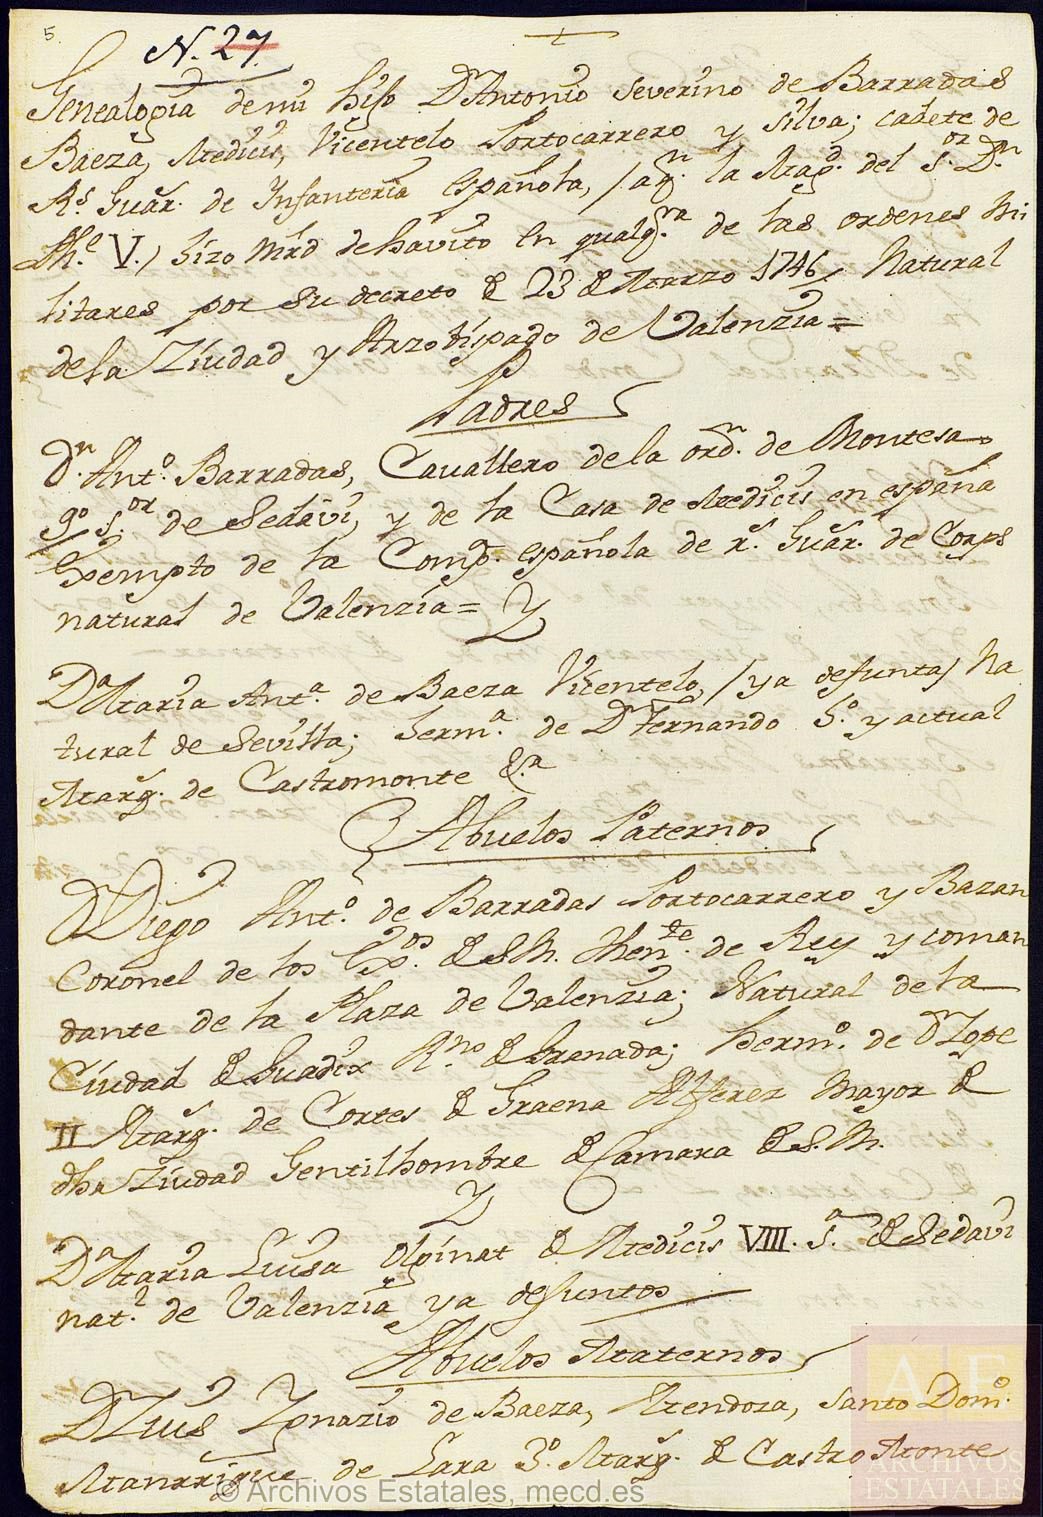 5.
N. 27.
Genealogia de mi hijo Dn Antonio Severino de Barradas
Baeza, Medicis, Vicentelo Portocarrero y Silva; cadete de
Rs. Guar. de Infanteria española, / a qn. la Magd. del Sor. Dn.
Phe. V. / hizo Mrd de havito en qualqra. de las ordenes Mi
litares por su decreto de 23 de Marzo 1746, Natural
de la Ziudad y Arzobispado de Valenzia =
Padres
Dn. Anto. Barradas, Cavallero de la ordn. de Montesa
9o Sor. de Sedavi, y de la Casa de Medicis en españa
Exempto de la Compa. española de Rs. Guar. de Corps
natural de Valenzia = Y
Da Maria Anta. de Baeza Vicentelo, / ya defunta / na
tural de Sevilla; herma. de Dn Fernando 5o. y actual
Marq. de Castromonte &a
Abuelos Paternos
Dn Diego Anto. de Barradas Portocarrero y Bazan
Coronel de los Exos. de S.M. Thente. de Rey y coman
dante de la Plaza de Valenzia; Natural de la
Ciudad de Guadix Rno de Granada; hermo. de Dn Lope
II Marq. de Cortes de Graena Alferez Mayor de
dha Ziudad Gentilhombre de Camara de S.M.
Y
Da Maria Luisa Olginat de Medicis VIII. Sa de Sedavi
natl. de Valenzia ya defuntos
Abuelos Maternos
Dn Luis Ignazio de Baeza, Mendoza, Santo Domo.
Manrrique de Lara 3o. Marq. de Castro Monte
© Archivos Estatales, mecd.es
AE
ARCHIVOS
ESTATALES